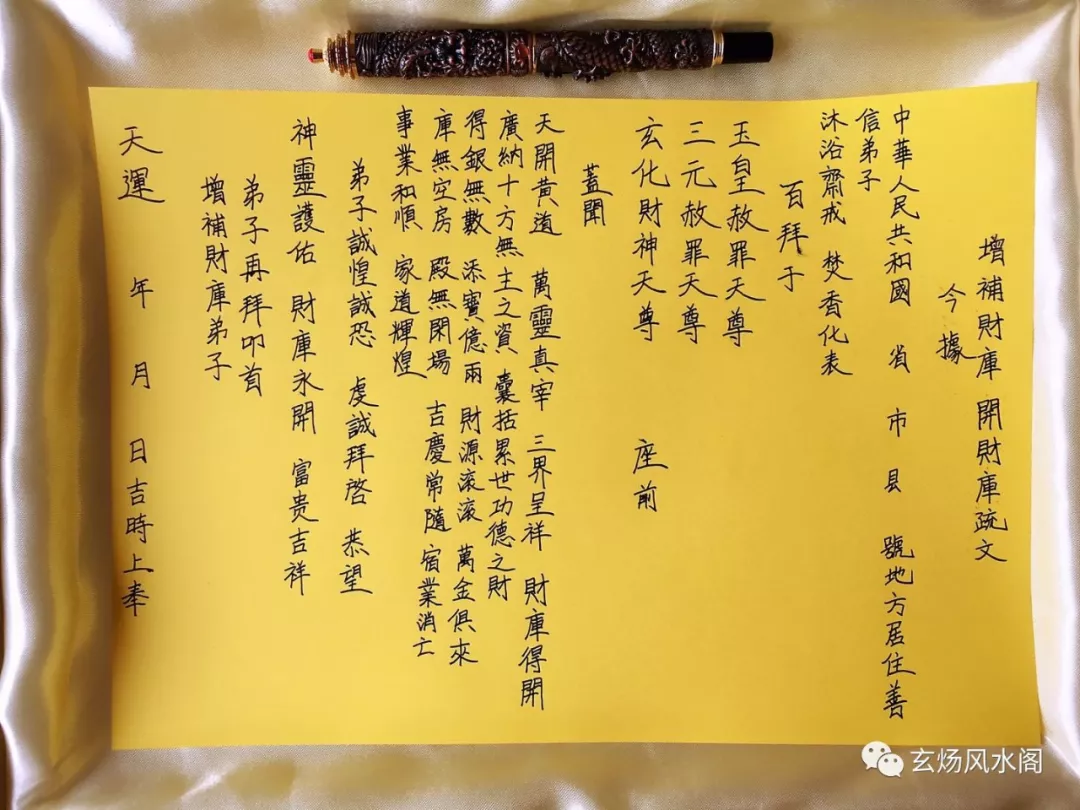 增補財庫 開財庫疏文
今據
中華人民共和國 省 市 县 號地方居住善
信弟子
沐浴齋戒 焚香化表
百拜于
玉皇赦罪天尊
三元赦罪天尊
玄化財神天尊 座前
蓋聞
天開黃道 萬靈真宰 三界呈祥 財庫得開
廣納十方無主之資 囊括累世功德之財
得銀無數 添寶億兩 財源滚滚 萬金俱來
庫無空房 殿無閑場 吉慶常隨 宿業消亡
事業和順 家道輝煌
弟子誠惶誠恐 虔誠拜啓 恭望
神靈護佑 財庫永開 富贵吉祥
弟子再拜叩首
增補財庫弟子
天運 年 月 日吉時上奉
玄炀风水阁